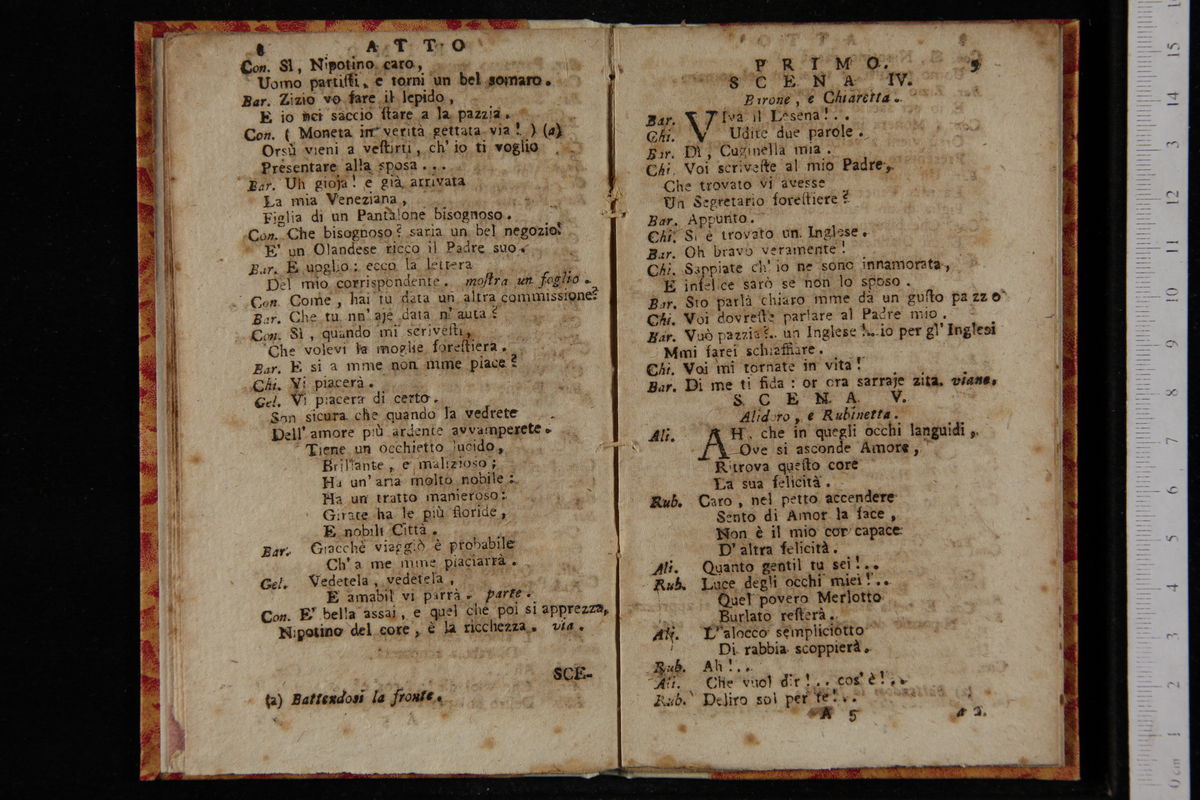 8 ATTO
Con. Sì, Nipotino caro,
Uomo partisti, e torni un bel somaro.
Bar. Zizio vo fare il lepido,
E io nci saccio stare a la pazzia.
Con. ( Moneta in verità gettata via! ) (a)
Orsù vieni a vestirti, ch' io ti voglio
Presentare alla sposa...
Bar. Uh gioja! e già arrivata
La mia Veneziana,
Figlia di un Pantalone bisognoso.
Con. Che bisognoso? saria un bel negozio!
E' un Olandese ricco il Padre suo.
Bar. E uoglio: ecco la lettera
Del mio corrispondente. mostra un foglio.
Con. Come, hai tu data un altra commissione?
Bar. Che tu nn' aje data n' auta?
Con. Sì, quando mi scrivesti,
Che volevi la moglie forestiera.
Bar. E si a mme non mme piace?
Chi. Vi piacerà.
Gel. Vi piacerà di certo.
Son sicura che quando la vedrete
Dell' amore più ardente avvamperete.
Tiene un occhietto lucido,
Brillante, e malizioso;
Ha un' aria molto nobile:
Ha un tratto manieroso:
Girate ha le più floride,
E nobili Città.
Bar. Giacchè viaggiò è probabile
Ch' a me mme piaciarrà.
Gel. Vedetela, vedetela,
E amabil vi parrà. parte.
Con. E' bella assai, e quel che poi si apprezza,
Nipotino del core, è la ricchezza. via.
SCE-
(a) Battendosi la fronte.
PRIMO. 9
SCENA IV.
Birone, e Chiaretta.
Bar. VIva il Lesena!..
Chi. Udite due parole.
Bar. Dì, Cuginella mia.
Chi. Voi scriveste al mio Padre,
Che trovato vi avesse
Un Segretario forestiere?
Bar. Appunto.
Chi. Si è trovato un Inglese.
Bar. Oh bravo veramente!
Chi. Sappiate ch' io ne sono innamorata,
E infelice sarò se non lo sposo.
Bar. Sto parlà chiaro mme dà un gusto pazzo
Chi. Voi dovreste parlare al Padre mio.
Bar. Vuò pazzia?.. un Inglese!...io per gl' Inglesi
Mmi farei schiaffiare.
Chi. Voi mi tornate in vita!
Bar. Di me ti fida: or ora sarraje zita. viano.
SCENA V.
Alidoro, e Rubinetta.
Ali. AH, che in quegli occhi languidi,
Ove si asconde Amore,
Ritrova questo core
La sua felicità.
Rub. Caro, nel petto accendere
Sento di Amor la face,
Non è il mio cor capace
D' altra felicità.
Ali. Quanto gentil tu sei!..
Rub. Luce degli occhi miei!..
Quel povero Merlotto
Burlato resterà.
Ali. L' alocco sempliciotto
Di rabbia scoppierà.
Rub. Ah!...
Ali. Che vuol dir!.. cos' è!...
Rub. Deliro sol per te!...
A 5